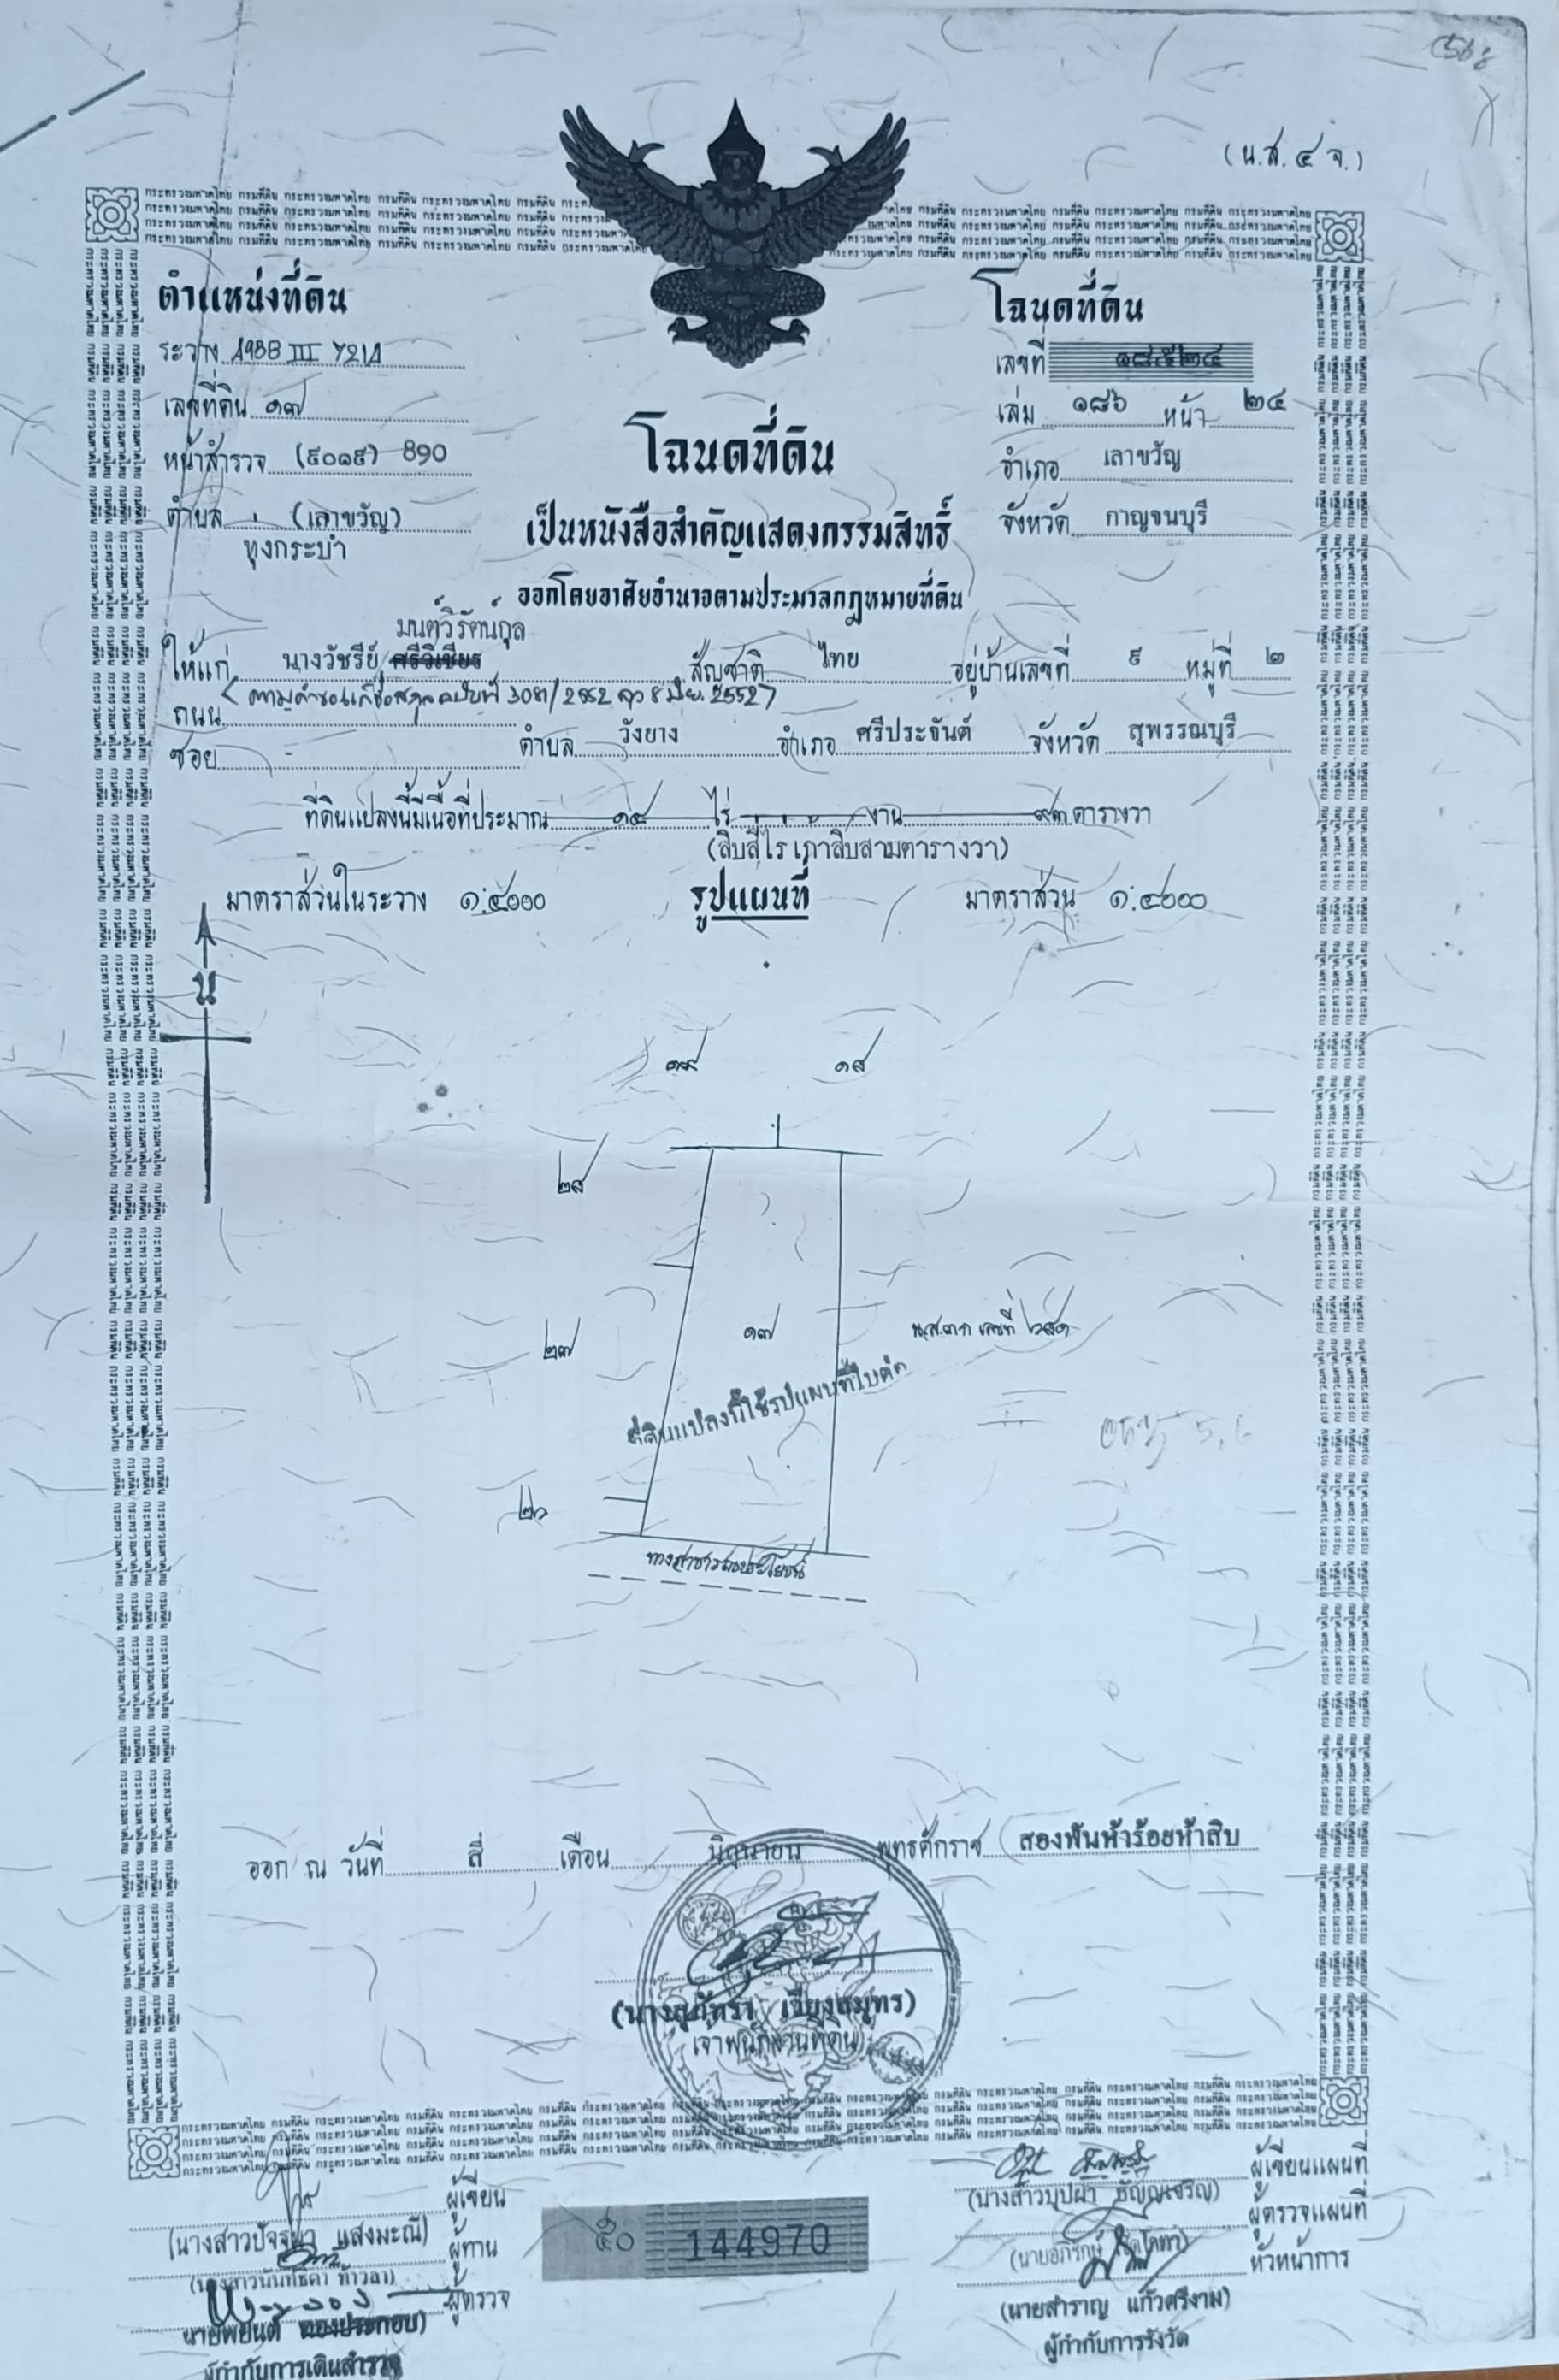 (น.ส. ๔ จ.)
ตำแหน่งที่ดิน
ระวาง
เลขที่ดิน ๑๗
หน้าสำรวจ (๙๐๑๙) 890
ตำบล (เลาขวัญ)
ทุ่งกระบ่ำ
โฉนดที่ดิน
เลขที่ ๑๘๕๒๔
เล่ม ๑๘๖ หน้า ๒๔
อำเภอ เลาขวัญ
จังหวัด กาญจนบุรี
โฉนดที่ดิน
เป็นหนังสือสำคัญแสดงกรรมสิทธิ์
ออกโดยอาศัยอำนาจตามประมวลกฎหมายที่ดิน
มนต์วิรัตน์กุล
ให้แก่ นางวัชรีย์ ศรีวิเชียร สัญชาติ ไทย อยู่บ้านเลขที่ ๙ หมู่ที่ ๒
ถนน
ซอย - ตำบล วังยาง อำเภอ ศรีประจันต์ จังหวัด สุพรรณบุรี
ที่ดินแปลงนี้มีเนื้อที่ประมาณ ๑๔ ไร่ - งาน ๙๓ ตารางวา
(สิบสี่ไร่ เก้าสิบสามตารางวา)
มาตราส่วนในระวาง ๑:๔๐๐๐ รูปแผนที่ มาตราส่วน ๑:๔๐๐๐
น
๑๙ ๑๘
๒๘
๒๗ ๑๗ น.ส.๓ก เลขที่
ที่ดินแปลงนี้ใช้รูปแผนที่ใบต่อ
๒๖
ทางสาธารณประโยชน์
ออก ณ วันที่ สี่ เดือน มิถุนายน พุทธศักราช สองพันห้าร้อยห้าสิบ
(นางสุภัทรา เชียงสมุทร)
เจ้าพนักงานที่ดิน
ผู้เขียน
(นางสาวปัจฐมา แสงมะณี)
ผู้ทาน
ผู้ตรวจ
นายพยนต์ ทองประกอบ)
ผู้กำกับการเดินสำรวจ
๕๐ 144970
ผู้เขียนแผนที่
(นางสาวบุปผา ธัญญเจริญ)
ผู้ตรวจแผนที่
หัวหน้าการ
(นายสำราญ แก้วศรีงาม)
ผู้กำกับการรังวัด